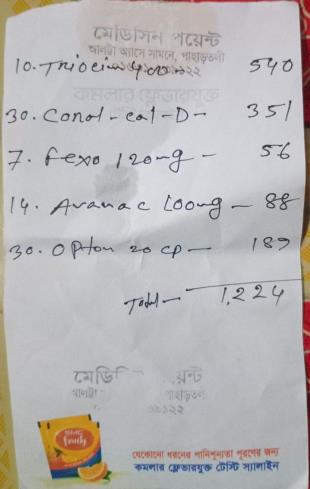 মেডিসিন পয়েন্ট
কমলার ফ্লেভারযুক্ত
10. Triocim 400 - 540
30. Conol-cal-D- 351
7. fexo 120mg - 56
14. Avanac 100mg - 88
30. Opton 20 cp - 189
Total - 1,224
মেডি য়েন্ট
fruity
যেকোনো ধরনের পানিশূন্যতা পূরণের জন্য
কমলার ফ্লেভারযুক্ত টেস্টি স্যালাইন